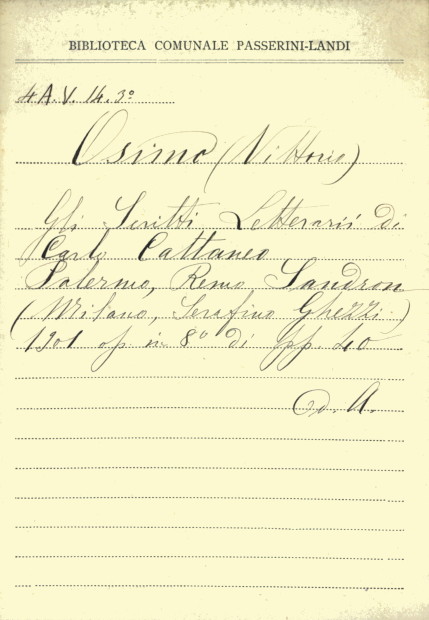 BIBLIOTECA COMUNALE PASSERINI-LANDI
4 A.V. 14. 3º
Osimo (Vittorio)
Gli Scritti Letterarii di
Carlo Cattaneo
Palermo, Remo Sandron
(Milano, Serafino Ghezzi)
1901 op in 8º di pp 40
D. A.